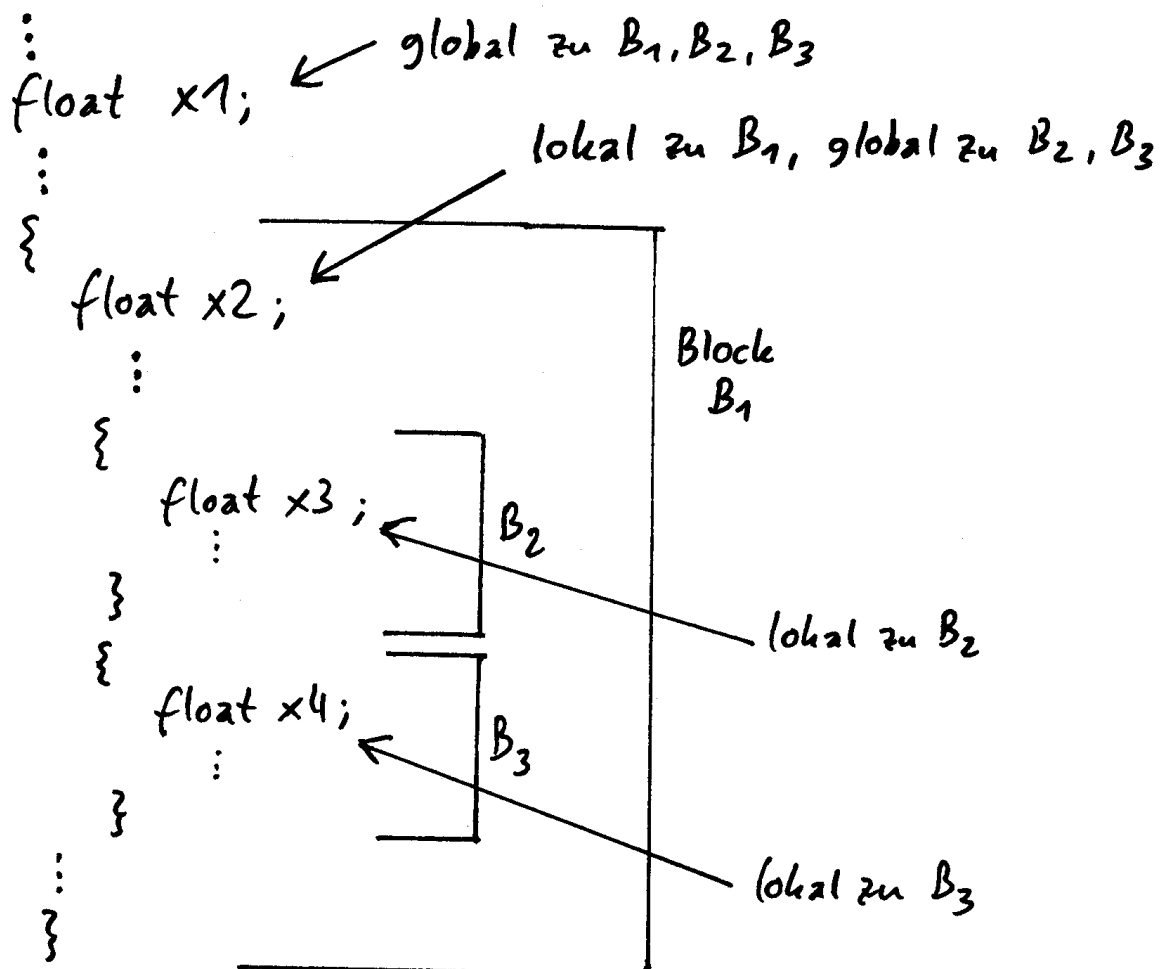 ⋮
global zu B₁, B₂, B₃
float x1;
lokal zu B₁, global zu B₂, B₃
⋮
{
float x2;
Block
B₁
⋮
{
float x3;
B₂
⋮
}
lokal zu B₂
{
float x4;
B₃
⋮
}
lokal zu B₃
⋮
}